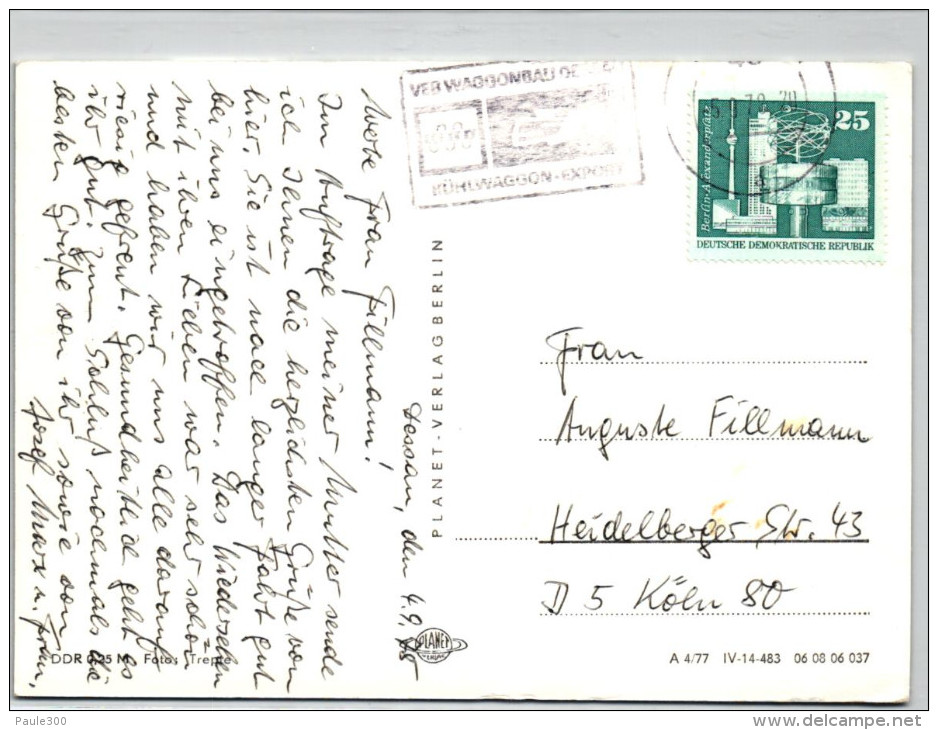 Dessau, den 4.9.
Werte Frau Fillmann!
Im Auftrage meiner Mutter sende
ich Ihnen die herzlichsten Grüße von
hier. Sie ist nach langer Fahrt gut
bei uns eingetroffen. Das Wiedersehen
mit ihren Lieben war sehr schön
und haben wir uns alle darauf
riesig gefreut. Gesundheitlich geht es
ihr gut. Zum Schluß nochmals die
besten Grüße von ihr sowie von
Josef Marx u. Frau,
VEB WAGGONBAU DESSAU
KÜHLWAGGON-EXPORT
25
Berlin-Alexanderplatz
DEUTSCHE DEMOKRATISCHE REPUBLIK
PLANET-VERLAG BERLIN
Frau
Auguste Fillmann
Heidelberger Str. 43
D 5 Köln 80
DDR 0,25 M Foto: Treppe
PLANET
VERLAG
A 4/77 IV-14-483 06 08 06 037
Paule300
www.delcampe.net